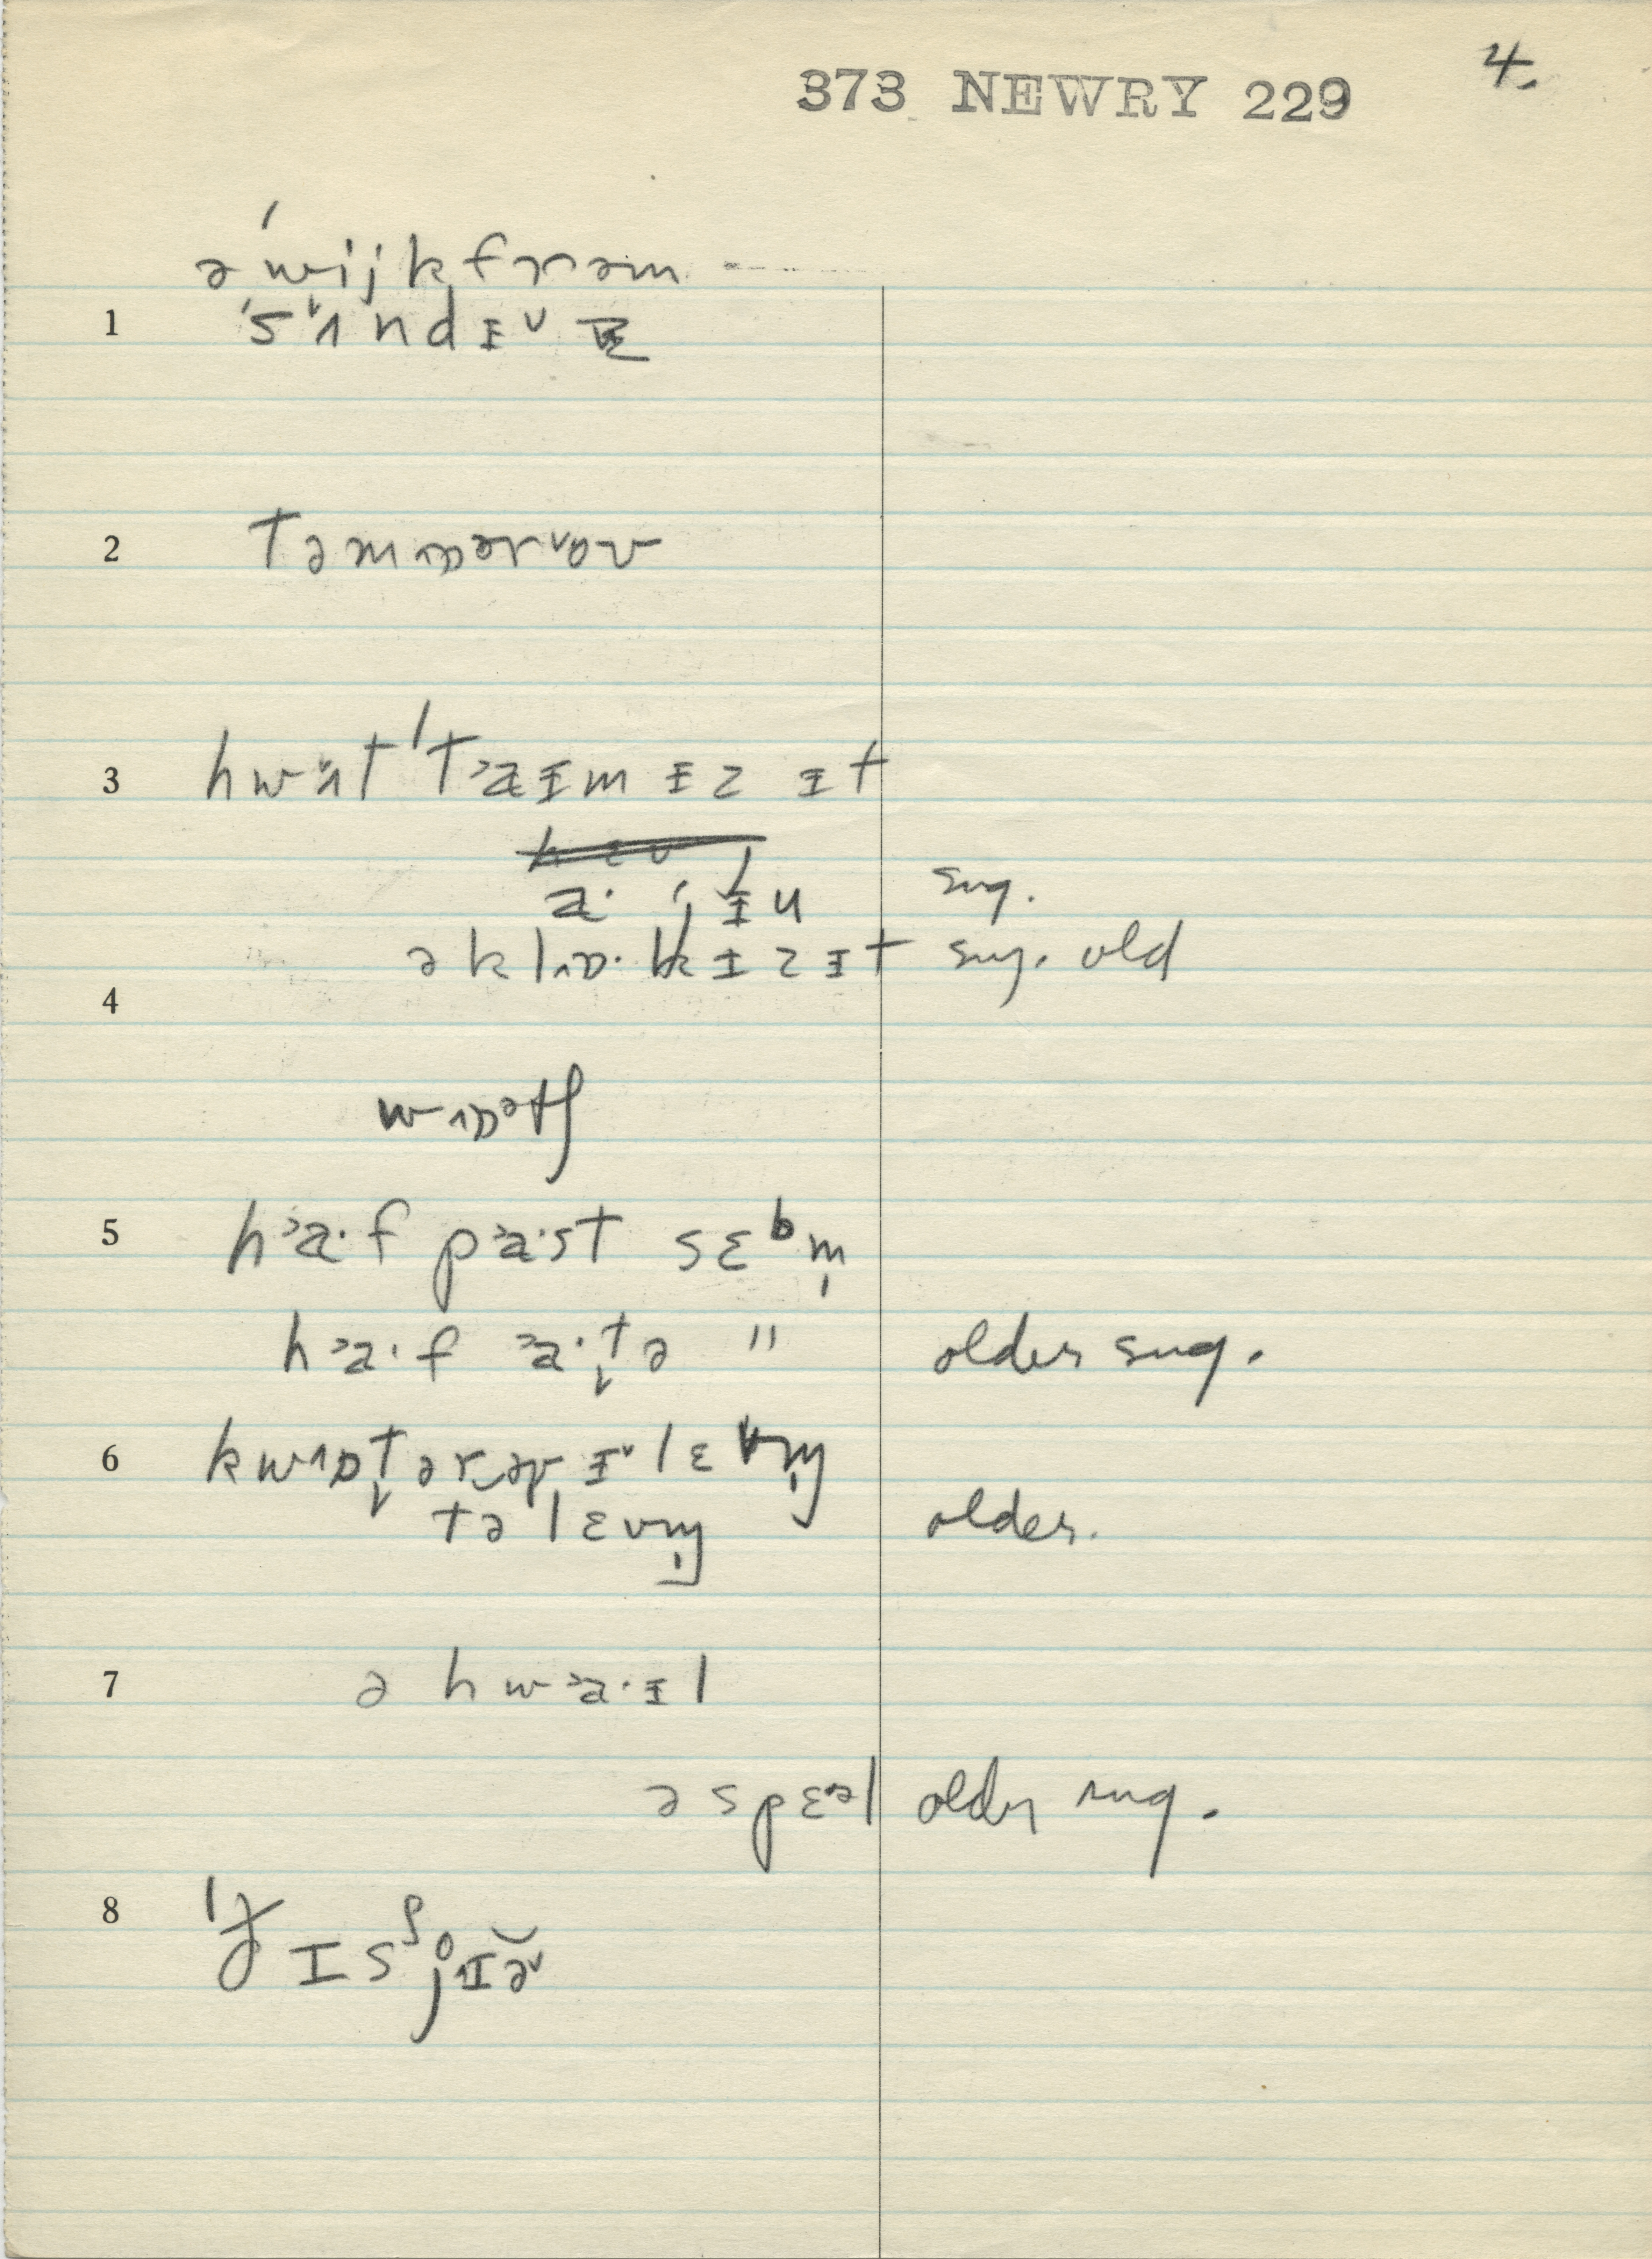 4.
373 NEWRY 229
ə ˈwijk frəm -----
1 ˈsʌndɪ
2 təmɒərəʊ
3 hwʌt ˈtaɪm ɪz ɪt
a· jɪu sug.
ə klɒ·k ɪz ɪt sug. old
4
wɒətʃ
5 ha·f pa·st sɛbm̩
ha·f a·t̬ə " older sug.
6 kwɒt̬ərəv ɪlɛvm̩
tə lɛvm̩ older.
7 ə hwa·ɪl
ə spɛəl older sug.
8 ˈðɪsʃjɪə